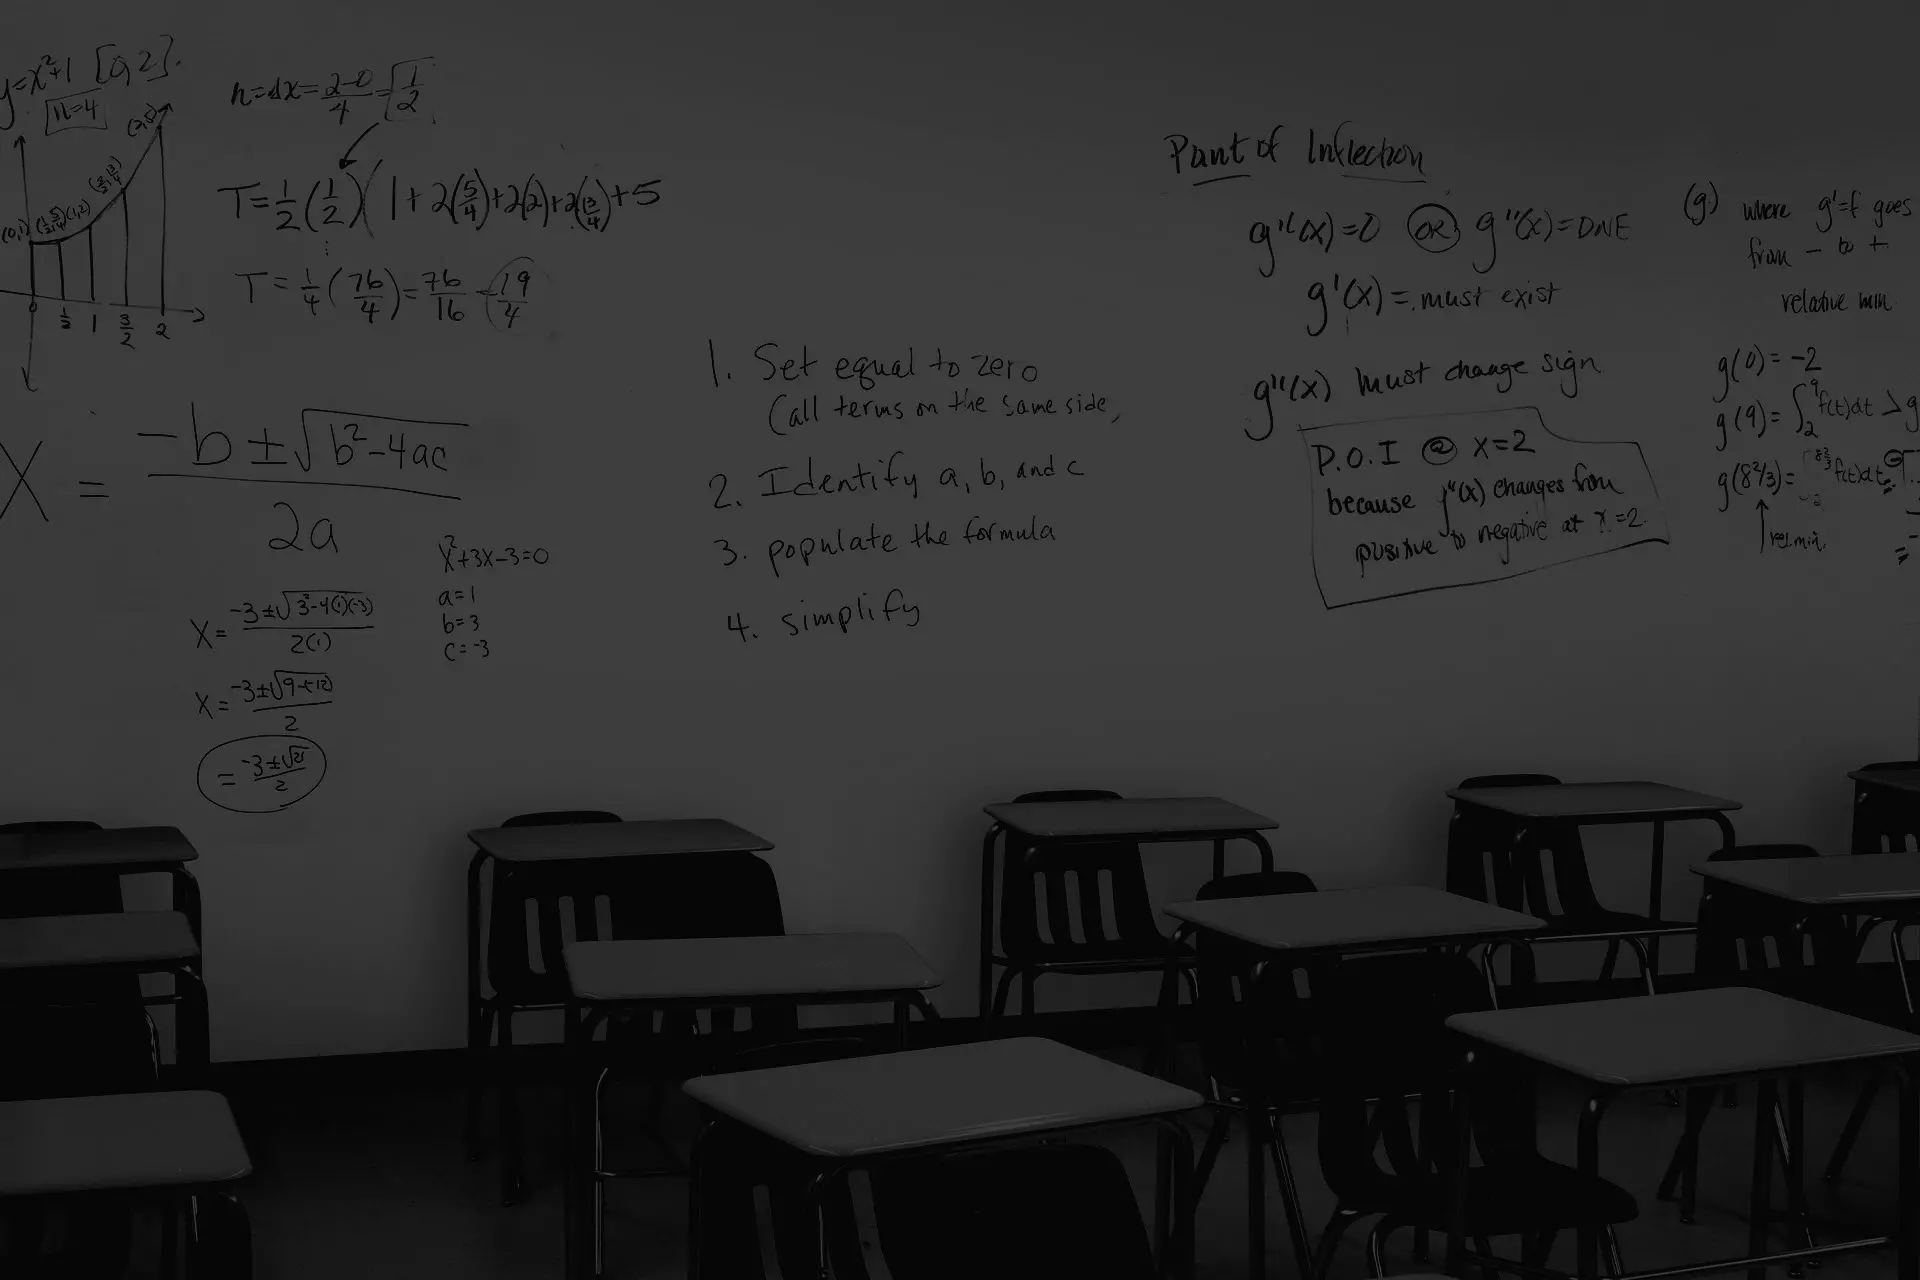 y=x²+1 [0,2].
n=4
(0,1) (1/2,5/4) (1,2) (3/2,13/4)
0 1/2 1 3/2 2
h=Δx=2-0/4=1/2
T=1/2(1/2)(1+2(5/4)+2(2)+2(13/4)+5
T=1/4(76/4)=76/16=19/4
X = -b±√b²-4ac/2a
x²+3x-3=0
a=1
b=3
c=-3
X=-3±√3²-4(1)(-3)/2(1)
X=-3±√9+12/2
=-3±√21/2
1. Set equal to zero
(all terms on the same side,
2. Identify a, b, and c
3. populate the formula
4. simplify
Point of Inflection
g''(x)=0 OR g''(x)=DNE
g'(x)=.must exist
g''(x) must change sign.
P.O.I @ x=2
because g''(x) changes from
positive to negative at x=2.
(g.) where g'=f goes
from - to +
relative min
g(0)=-2
g(9)=∫₂⁹f(t)dt > g
g(8⅔)= f(t)dt
rel.min.